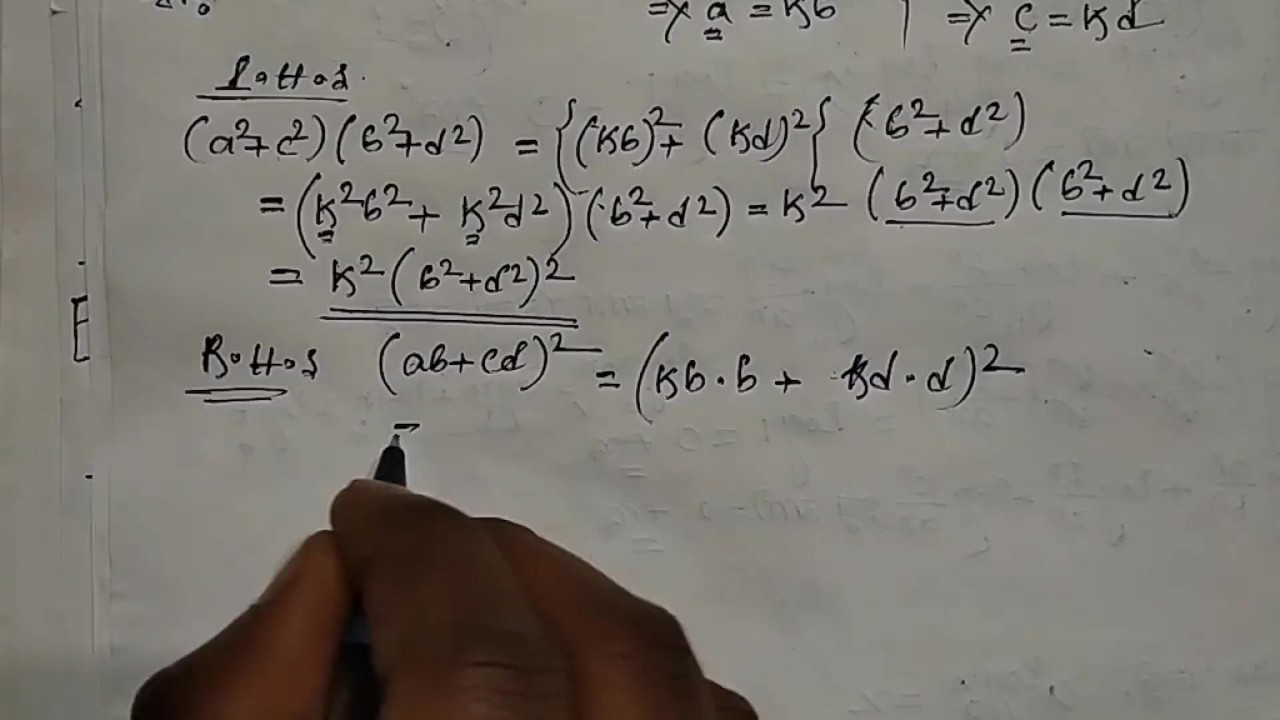 => a = Kb | => c = Kd
L.H.S.
(a²+c²)(b²+d²) = {(Kb)²+(Kd)²} (b²+d²)
= (K²b²+ K²d²)(b²+d²) = K² (b²+d²)(b²+d²)
= K²(b²+d²)²
R.H.S (ab+cd)² = (Kb·b + Kd·d)²